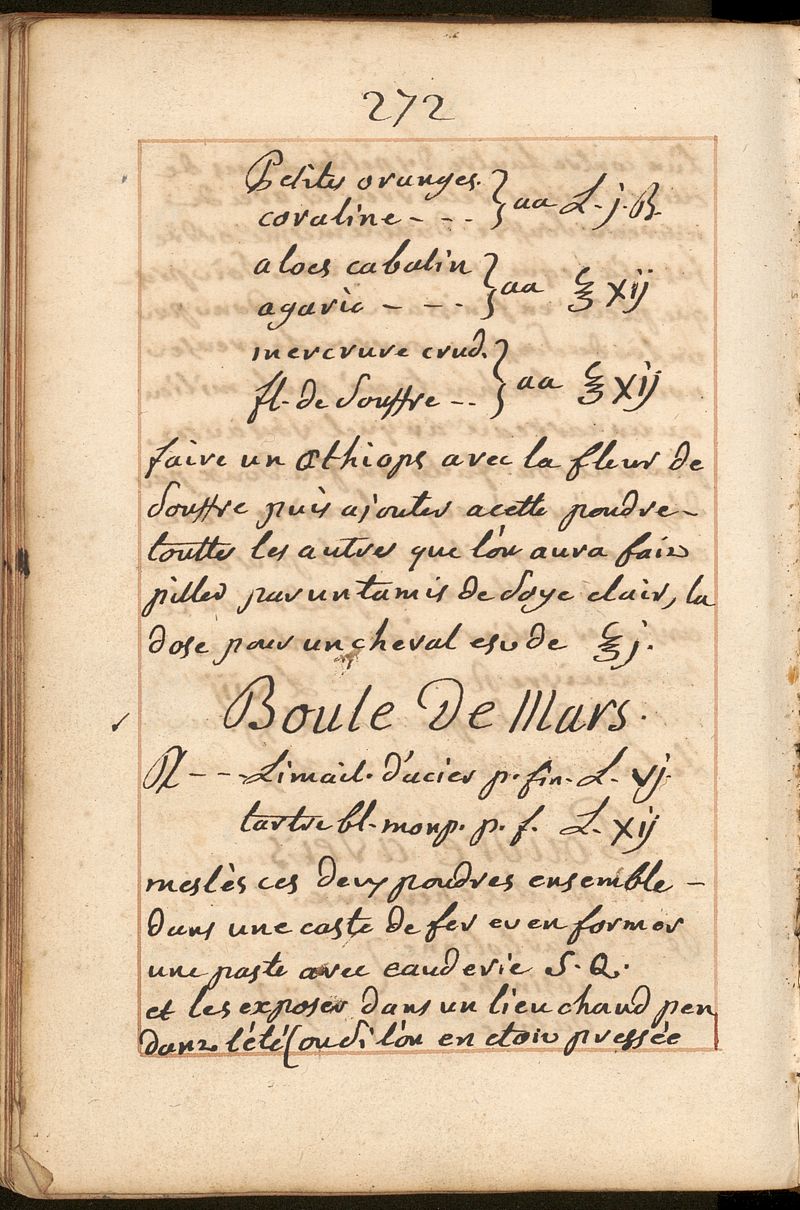 272
Petites oranges. } aa L. j. ß.
coraline - - -
aloes cabalin } aa ℥ xij
agaric - - -
mercrure crud. } aa ℥ xij
fl. de souffre - -
faire un œthiops avec la fleur de
souffre puis ajouter acette poudre -
touttes les autres que l'on aura fait
piller par un tamis de soye clair, la
dose pour un cheval est de ℥ j.
Boule De Mars.
℞ - - - Limail. d'acier p. fin. L. vj.
tartre bl. monp. p. f. L. xij
meslés ces deux poudres ensemble -
dans une caste de fer et en former
une paste avec eauderie S. Q.
et les exposer dans un lieu chaud pen
dant l'été (ou si l'on en etoit pressée